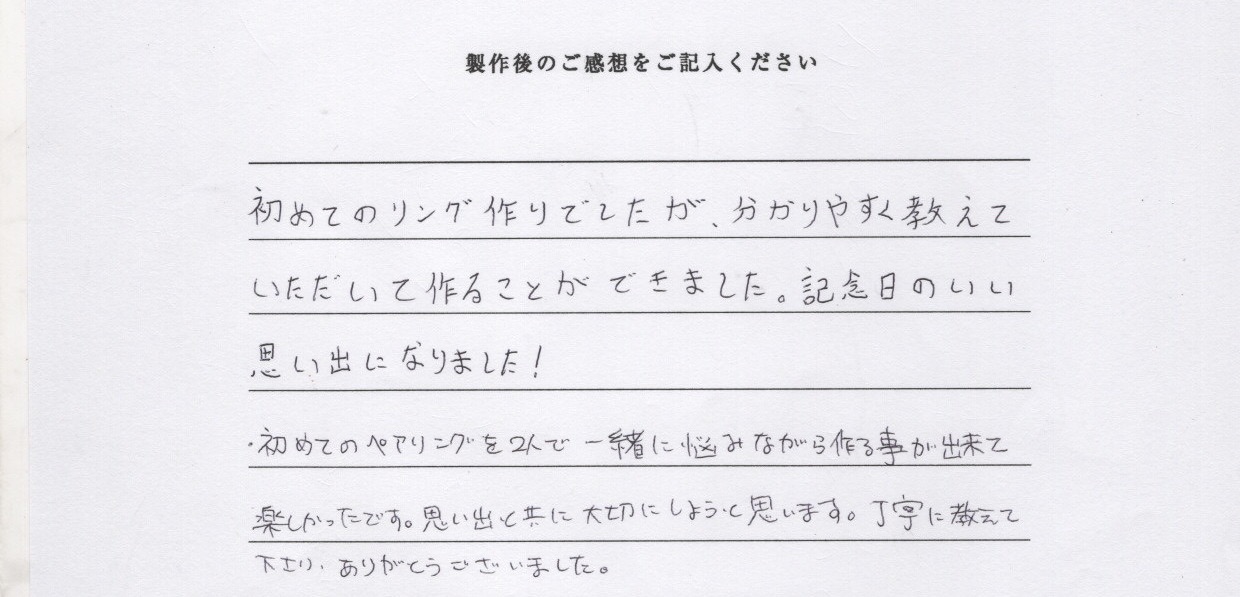 製作後のご感想をご記入ください
初めてのリング作りでしたが、分かりやすく教えて
いただいて作ることができました。記念日のいい
思い出になりました!
・初めてのペアリングを2人で一緒に悩みながら作る事が出来て
楽しかったです。思い出と共に大切にしようと思います。丁寧に教えて
下さり、ありがとうございました。